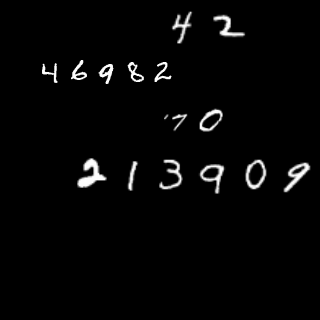 42
46982
70
213909